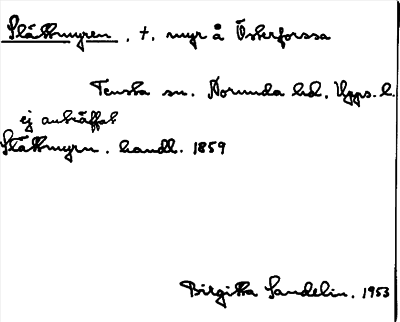 Slåttmyren, †, myr å Österforssa
Tensta sn. Norunda hd. Upps. l.
ej anträffat
Slåttmyrn. handl. 1859
Birgitta Sandelin. 1953